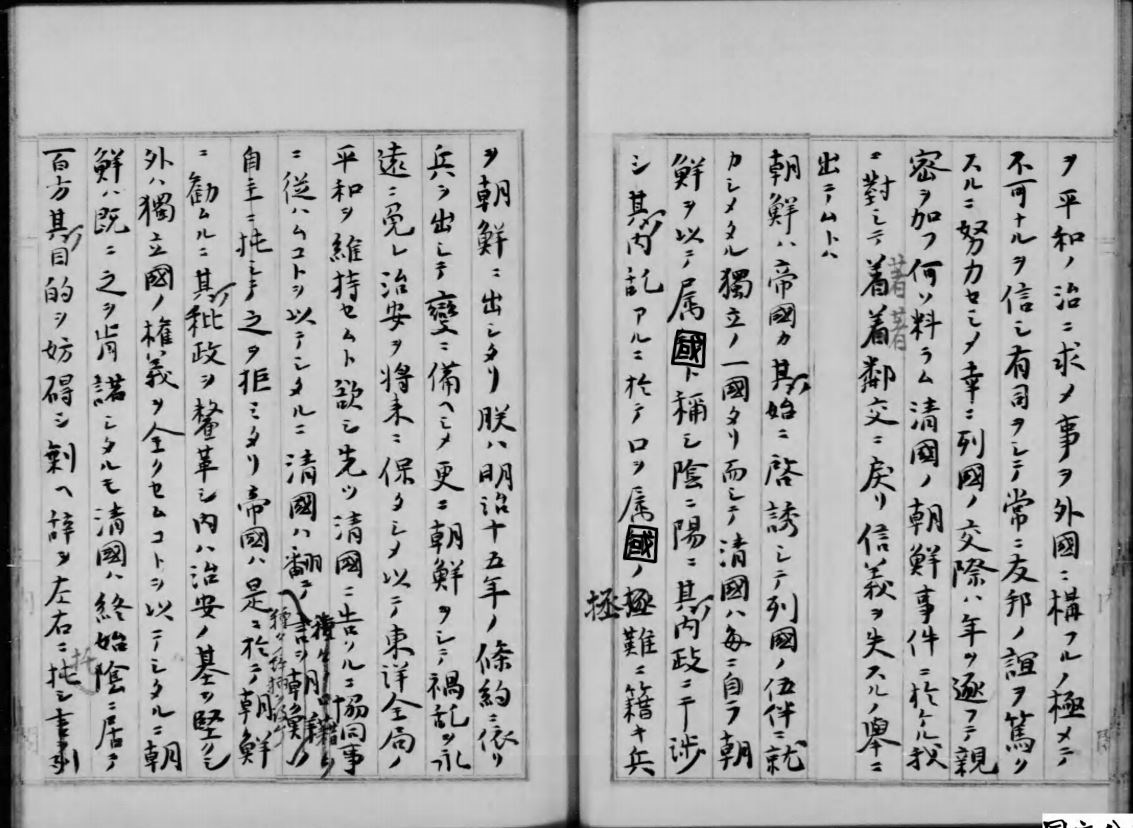 ヲ平和ノ治ニ求メ事ヲ外國ニ構フルノ極メテ
不可ナルヲ信シ有司ヲシテ常ニ友邦ノ誼ヲ篤ク
スルニ努力セシメ幸ニ列國ノ交際ハ年ヲ逐フテ親
密ヲ加フ何ソ料ラム清國ノ朝鮮事件ニ於ケル我
ニ對シテ着着鄰交ニ戻リ信義ヲ失スルノ擧ニ
著著
出テムトハ
朝鮮ハ帝國カ其ノ始ニ啓誘シテ列國ノ伍伴ニ就
カシメタル獨立ノ一國タリ而シテ清國ハ每ニ自ラ朝
鮮ヲ以テ属國ト稱シ陰ニ陽ニ其ノ内政ニ干渉
シ其ノ内乱アルニ於テ口ヲ属國ノ極難ニ籍キ兵
極
ヲ朝鮮ニ出シタリ朕ハ明治十五年ノ條約ニ依リ
兵ヲ出シテ變ニ備ヘシメ更ニ朝鮮ヲシテ禍乱ヲ永
遠ニ免レ治安ヲ將来ニ保タシメ以テ東洋全局ノ
平和ヲ維持セムト欲シ先ツ清國ニ告クルニ協同事
ニ從ハムコトヲ以テシタルニ清國ハ翻テ
自主ニ托シテ之ヲ拒ミタリ帝國ハ是ニ於テ朝鮮
ニ勸ムルニ其ノ秕政ヲ釐革シ内ハ治安ノ基ヲ堅クシ
外ハ獨立國ノ權義ヲ全クセムコトヲ以テシタルニ朝
鮮ハ既ニ之ヲ肯諾シタルモ清國ハ終始陰ニ居テ
百方其ノ目的ヲ妨碍シ剰ヘ辞ヲ左右ニ托シ